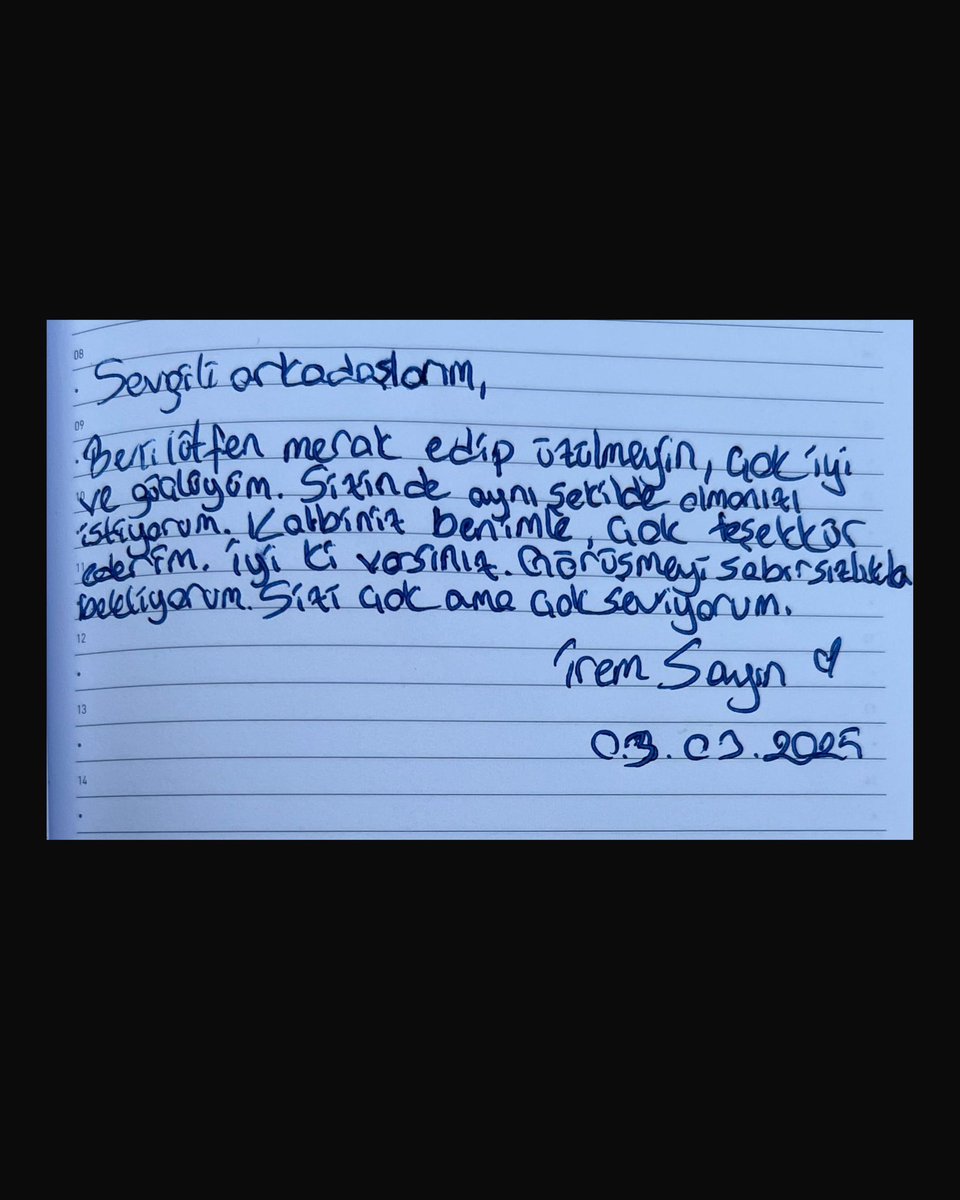 08
Sevgili arkadaşlarım,
09
Beni lütfen merak edip üzülmeyin, çok iyi
ve güçlüyüm. Sizinde aynı şekilde olmanızı
istiyorum. Kalbiniz benimle, çok teşekkür
11 ederim. İyi ki varsınız. Görüşmeyi sabırsızlıkla
bekliyorum. Sizi çok ama çok seviyorum.
12
İrem Sayın
13
03.03.2025
14